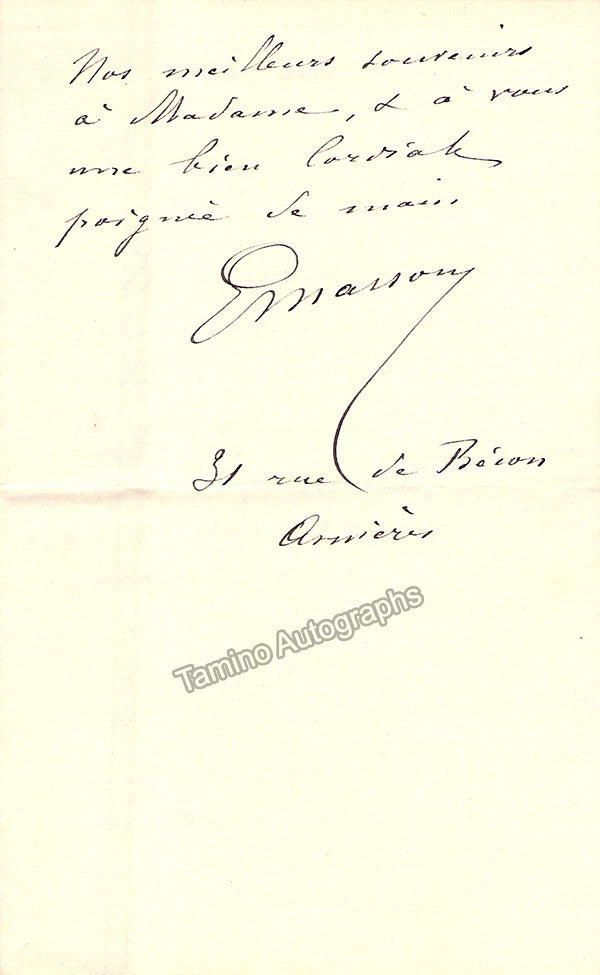 Nos meilleurs souvenirs
à Madame, & à vous
une bien Cordiale
poignée de main
EMasson
31 rue de Bécon
Asnières
Tamino Autographs